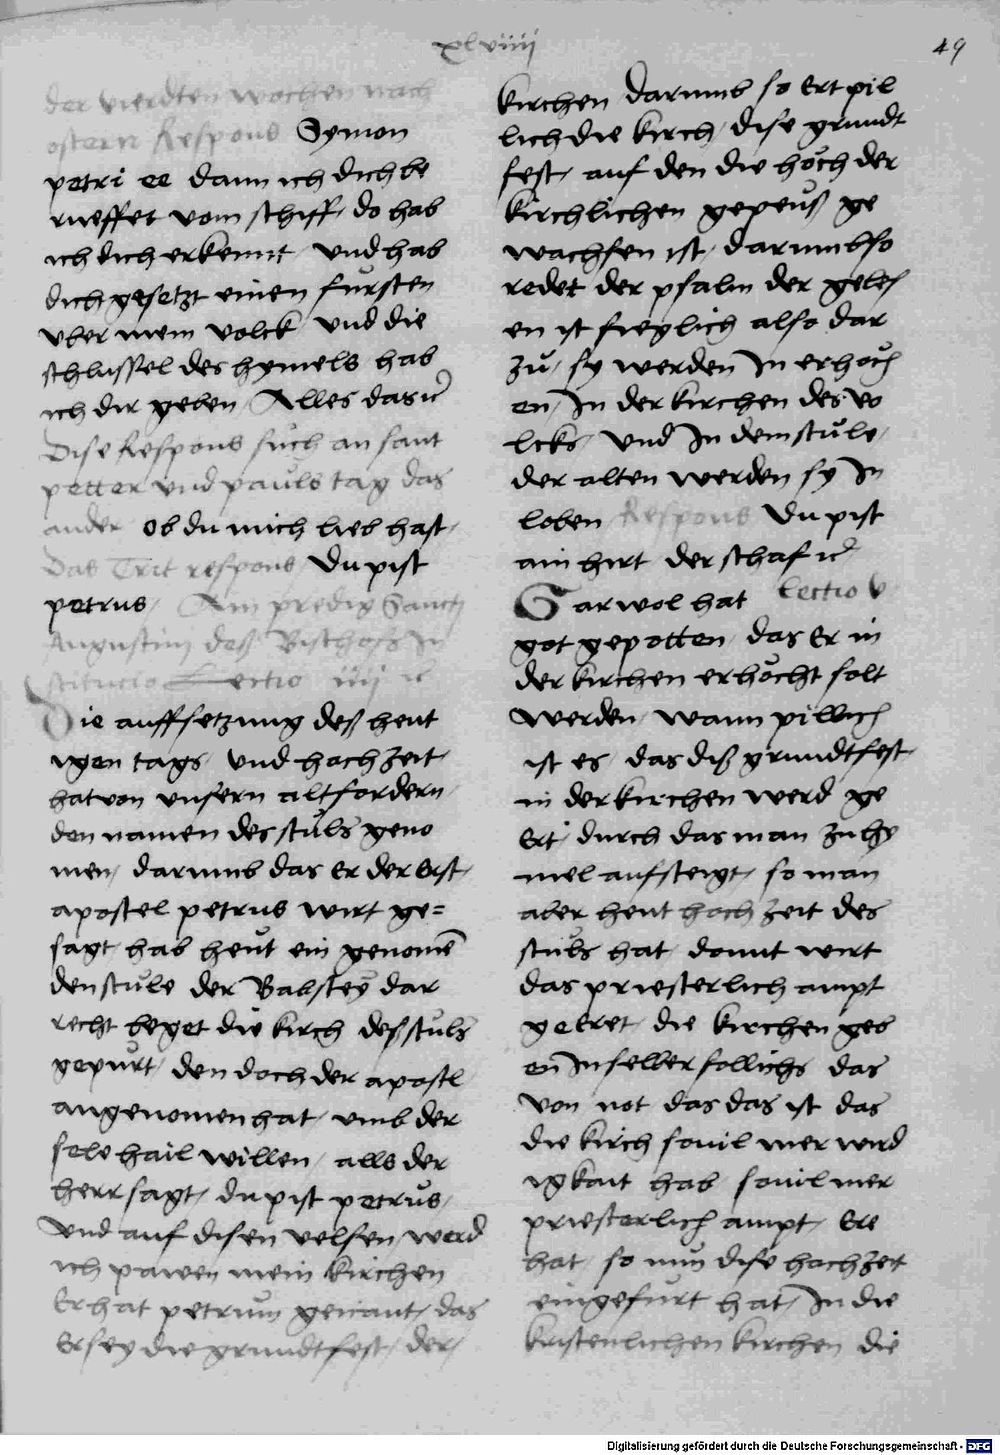 xlviiii
49
der vierdten wochen nach
ostern Respons Symon
petri ee dann ich dich be
rueffet vom schiff / do hab
ich dich erkennt / und hab
dich gesetzt einen fürsten
vber mein volck / und die
schlussel des hymels hab
ich dir geben / Alles das ic
Dise Respons such an sant
petter und pauls tag das
ander ob du mich lieb hast /
Das Trit respons / Du pist
petrus / Ain predig Sancti
Augustini deß Bischofs In
stitucio Lectio iiij ic
Die auffsetzung deß heut
igen tags / und hachzeit /
hat von unsern altfordern /
den namen des stuls geno
men / darumb das er der erst /
apostel petrus wirt ge=
sagt / hab heut ein genomē
den stule der Babstey dar
recht beget die kirch deß stuls
gepurt / den doch der apostl /
angenomen hat / umb der
sele hail willen / alls der
herr sagt / du pist petrus /
und auf disen velsen / werd
ich pawen mein kirchen
Er hat petrum genant / das
er sey die grundtfest / der /
kirchen darumb so ert pil
lich die kirch / dise grundt
fest / auf den die höch der
kirchlichen gepeuß ge
wachsen ist / darumb so
redet der psalm der geles
en ist fueglich also dar
zu / sy werden In erhoch
en / In der kirchen des vo
lcks / und In dem stule /
der alten werden sy In
loben Respons Du pist
ain hirt der schaf ic
Gar wol hat Lectio v
got gepotten / das er in
der kirchen erhöcht solt
werden / wann pillich
ist es / das diß grundtfest /
in der kirchen werd ge
ert / durch das man zu hy
mel aufsteigt / so man
aber heut hoch zeit des
stuls hat / domit wirt
das priesterlich ampt
geeret / die kirchen geb
en In selber sollichs das
von not das das ist das
die kirch souil mer wird
igkait hab souil mer
priesterlich ampt / Ere
hat / so nun dise hachzeit
eingefurt hat / In die
kristenlichen kirchen die
Digitalisierung gefördert durch die Deutsche Forschungsgemeinschaft - DFG